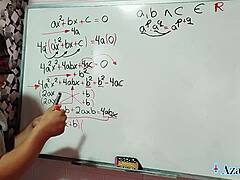 ax²+bx+c=0
a,b ∧ c ∈ R
4a
aᵖ·a^q = a^(p+q)
4a(ax²+bx+c)=4a(0)
4a²x²+4abx+4ac=0
+b²
4a²x²+4abx+b²=b²-4ac
2ax +b)
2ax +b)
+2axb=4abx
+b)
Aza